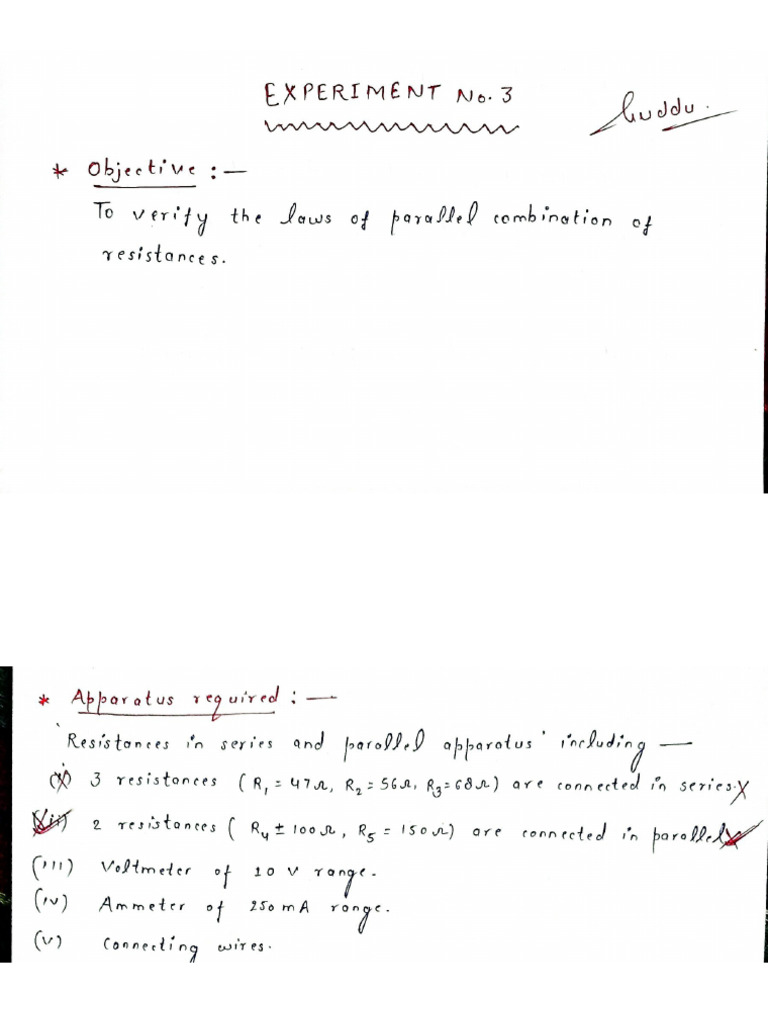 EXPERIMENT No. 3
Guddu.
* Objective :—
To verify the laws of parallel combination of
resistances.
* Apparatus required : —
'Resistances in series and parallel apparatus' including —
(i) 3 resistances (R₁ = 47Ω, R₂ = 56Ω, R₃ = 68Ω) are connected in series.
(ii) 2 resistances ( R₄ ± 100Ω, R₅ = 150Ω) are connected in parallel
(iii) Voltmeter of 10 V range.
(iv) Ammeter of 250 mA range.
(v) Connecting wires.